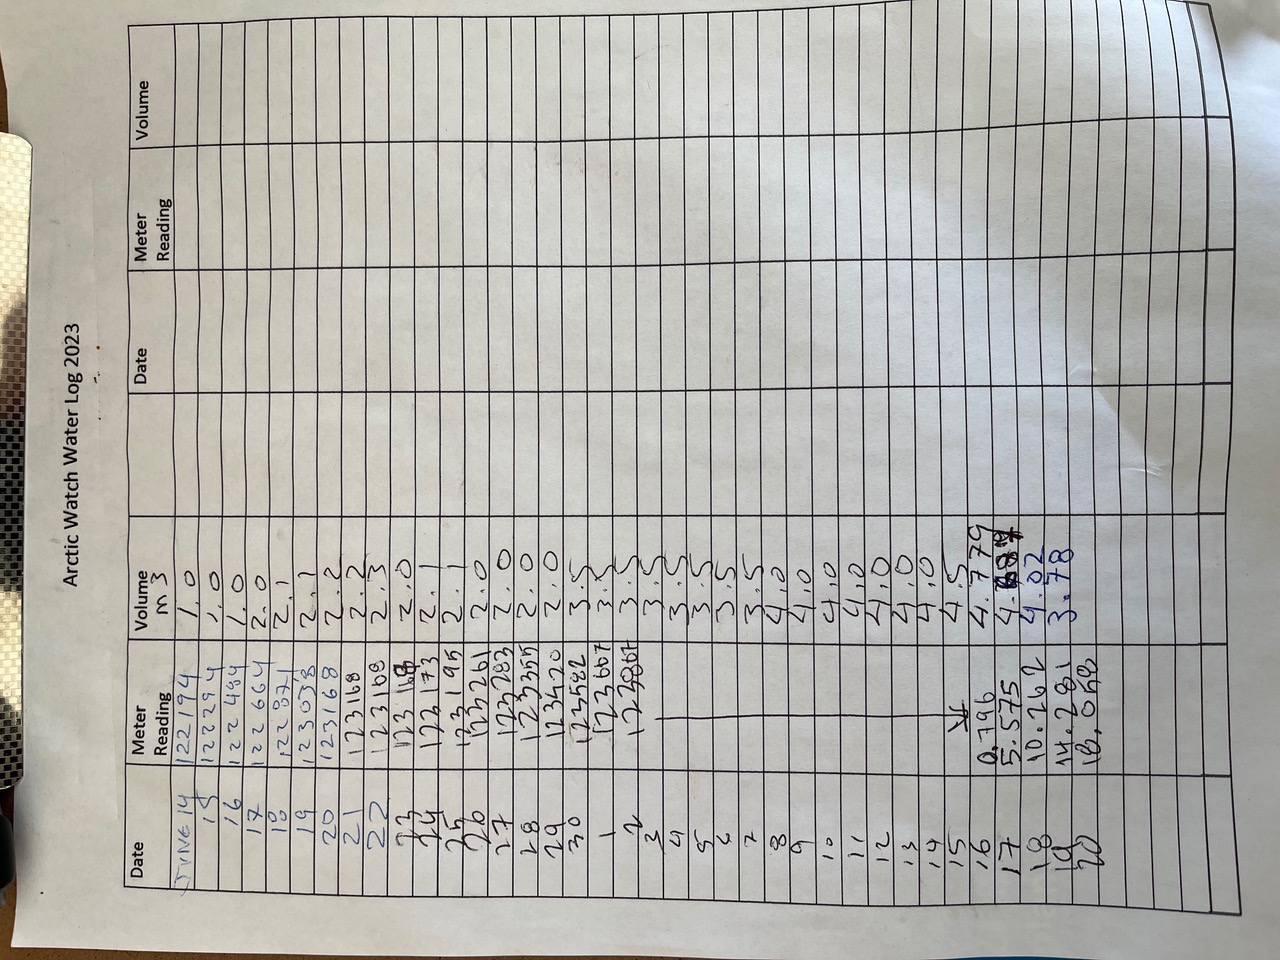 Arctic Watch Water Log 2023
Date Meter Reading Volume m3 Date Meter Reading Volume
JUNE 14 122194 1.0
15 122294 1.0
16 122484 1.0
17 122664 2.0
18 122871 2.1
19 123038 2.1
20 123168 2.2
21 123168 2.2
22 123168 2.3
23 123 2.0
24 123173 2.1
25 123195 2.1
26 123261 2.0
27 123283 2.0
28 123355 2.0
29 123420 2.0
30 123582 3.5
1 123667 3.5
2 123867 3.5
3 3.5
4 3.5
5 3.5
6 3.5
7 3.5
8 4.0
9 4.0
10 4.0
11 4.0
12 4.0
13 4.0
14 4.0
15 4.5
16 0.796 4.779
17 5.575
18 10.262 4.02
19 14.281 3.78
20 18.058